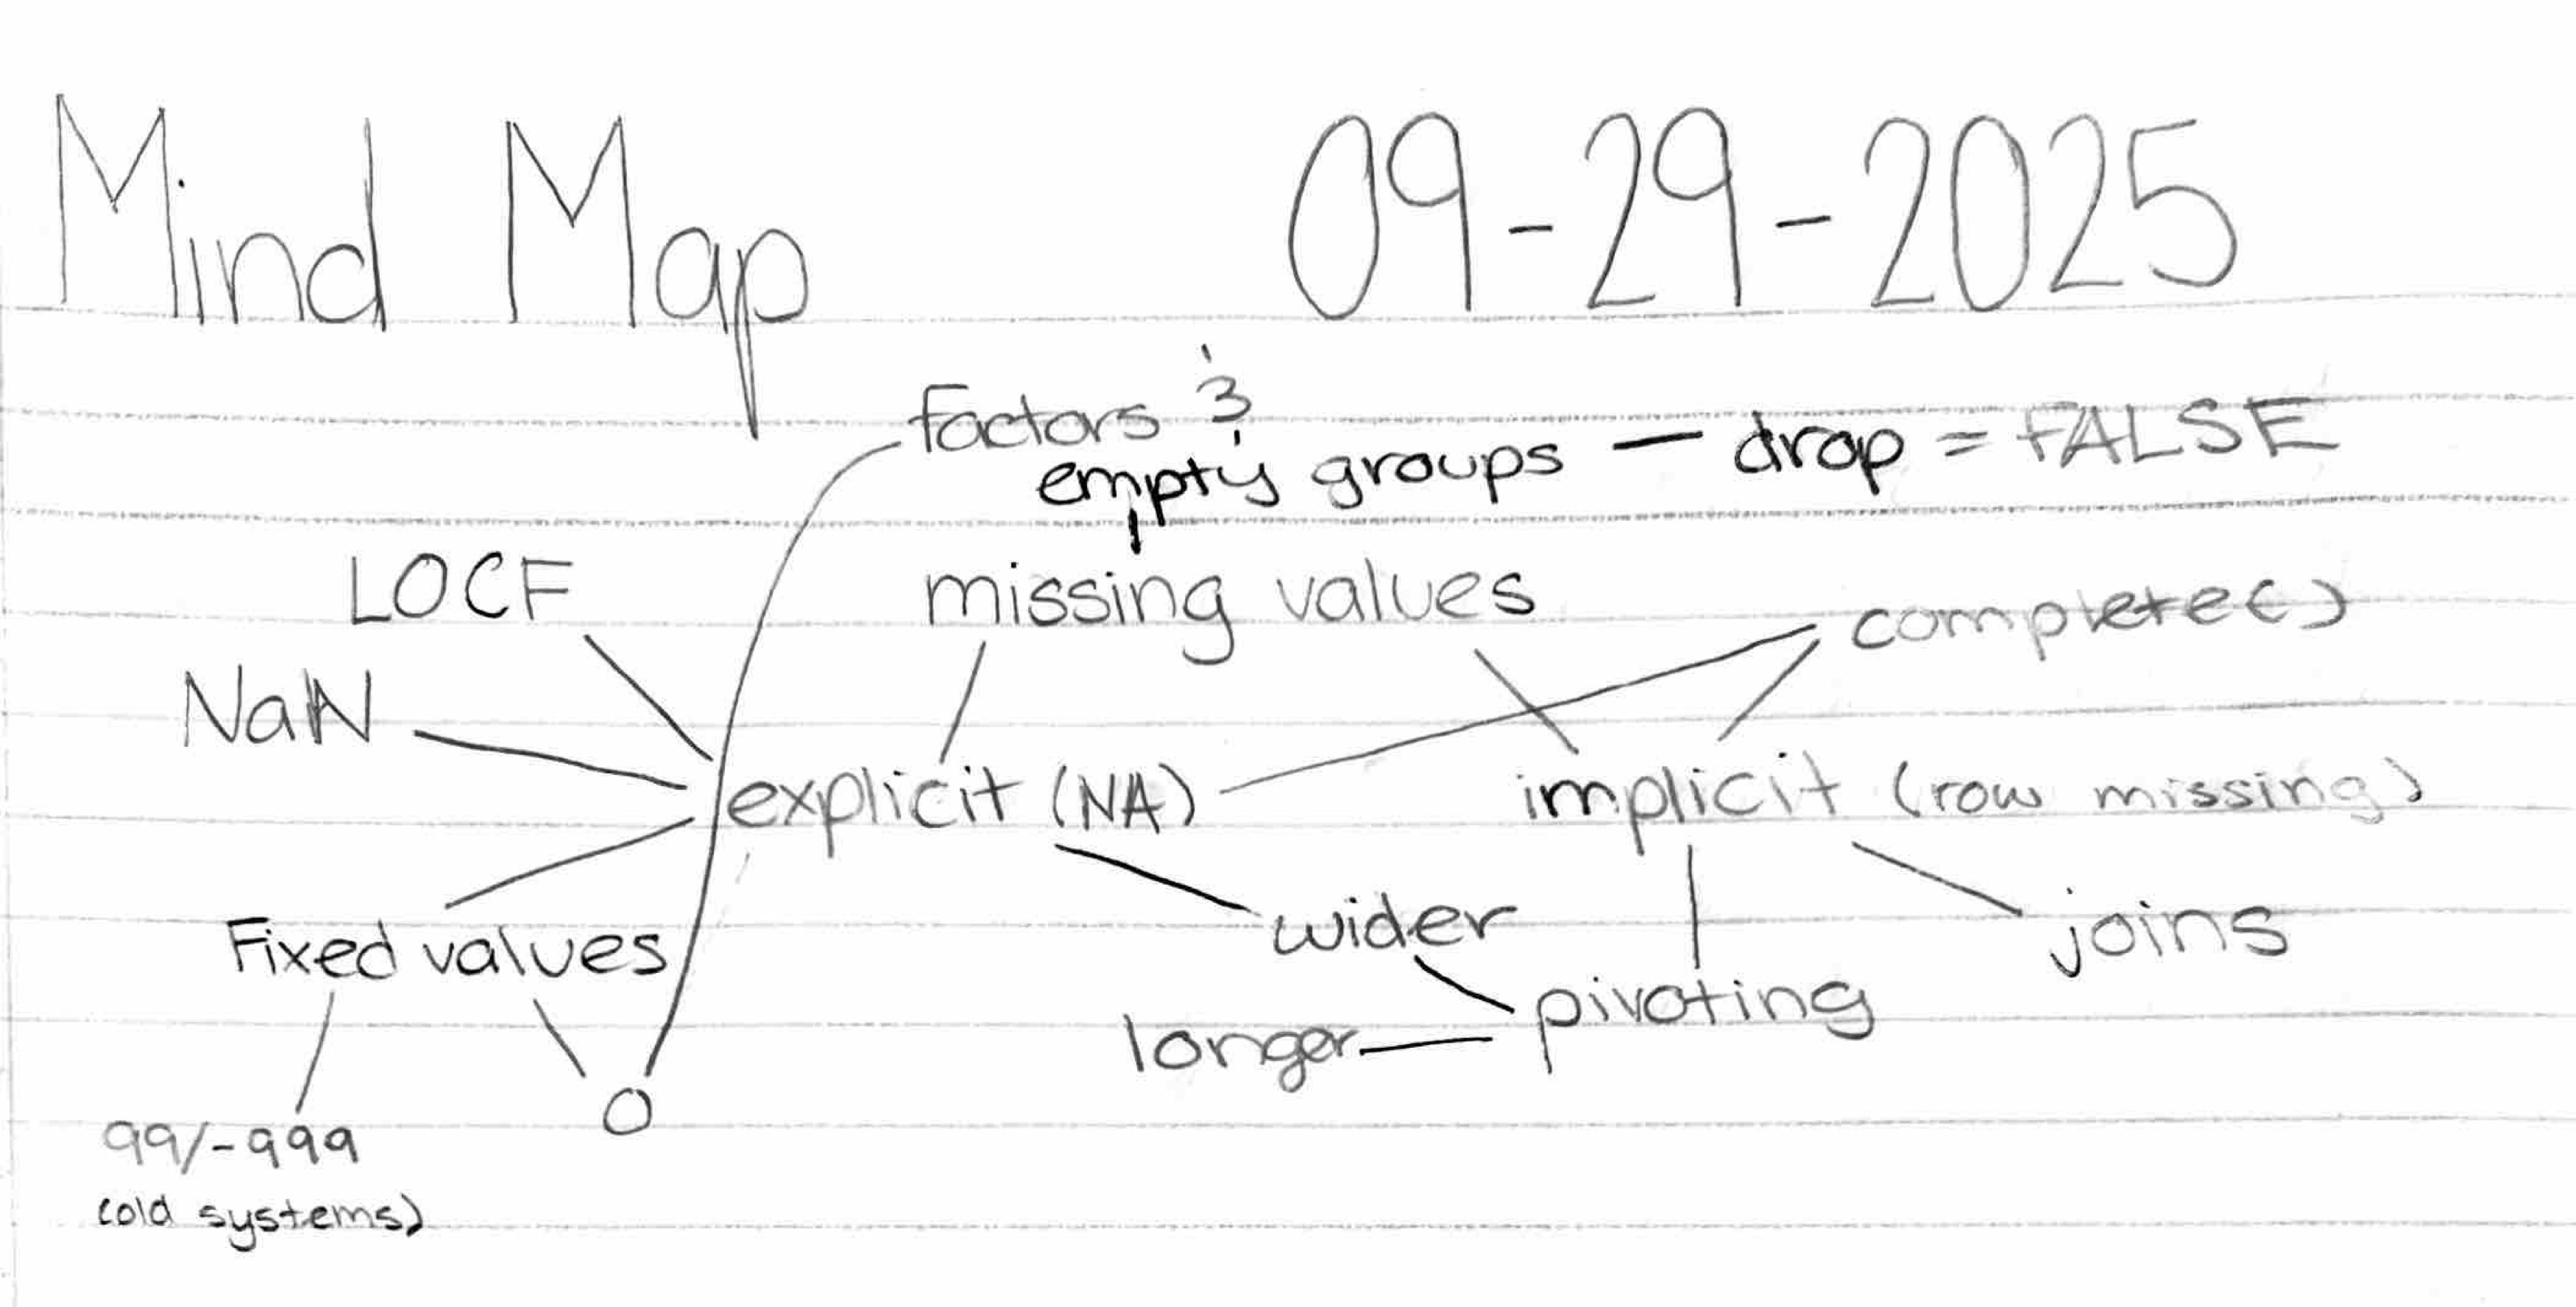 Mind Map 09-29-2025
Factors &
empty groups — drop = FALSE
LOCF
missing values
complete()
NaN
explicit (NA)
implicit (row missing)
Fixed values
wider
joins
longer
pivoting
0
99/-999
(old systems)